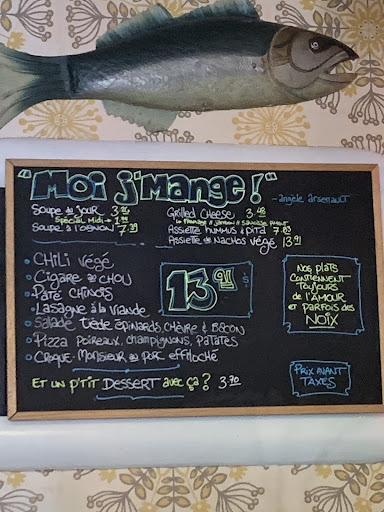 "Moi j'mange!"
- angèle arsenault
Soupe du jour 3.
Spécial Midi → 1.
Soupe à l'oignon 7.39
Grilled Cheese 3.48
Assiette hummus & pita 7.83
Assiette de nachos végé 13.91
• Chili végé
• Cigare au chou
• Pâté chinois
• Lasagne à la viande
• Salade tiède épinards, chèvre & bacon
• Pizza poireaux, champignons, patates
• Croque-Monsieur au porc effiloché
13.91
Nos plats
contiennent
toujours
de l'amour
et parfois des
noix
Et un p'tit dessert avec ça? 3.70
Prix avant
taxes